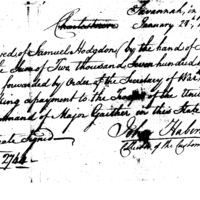 Savannah, in
Charlestown January 28,
ed of Samuel Hodgdon by the hand of
the Sum of Two thousand Seven hundred
forwarded by Order of the Secretary of War
ing a payment to the Troops of the Unit
command of Major Gaither in this State
cate Signed
John Haber
2744 of the Customs